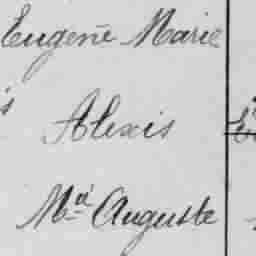 Eugene Marie
Alexis
Ma Auguste